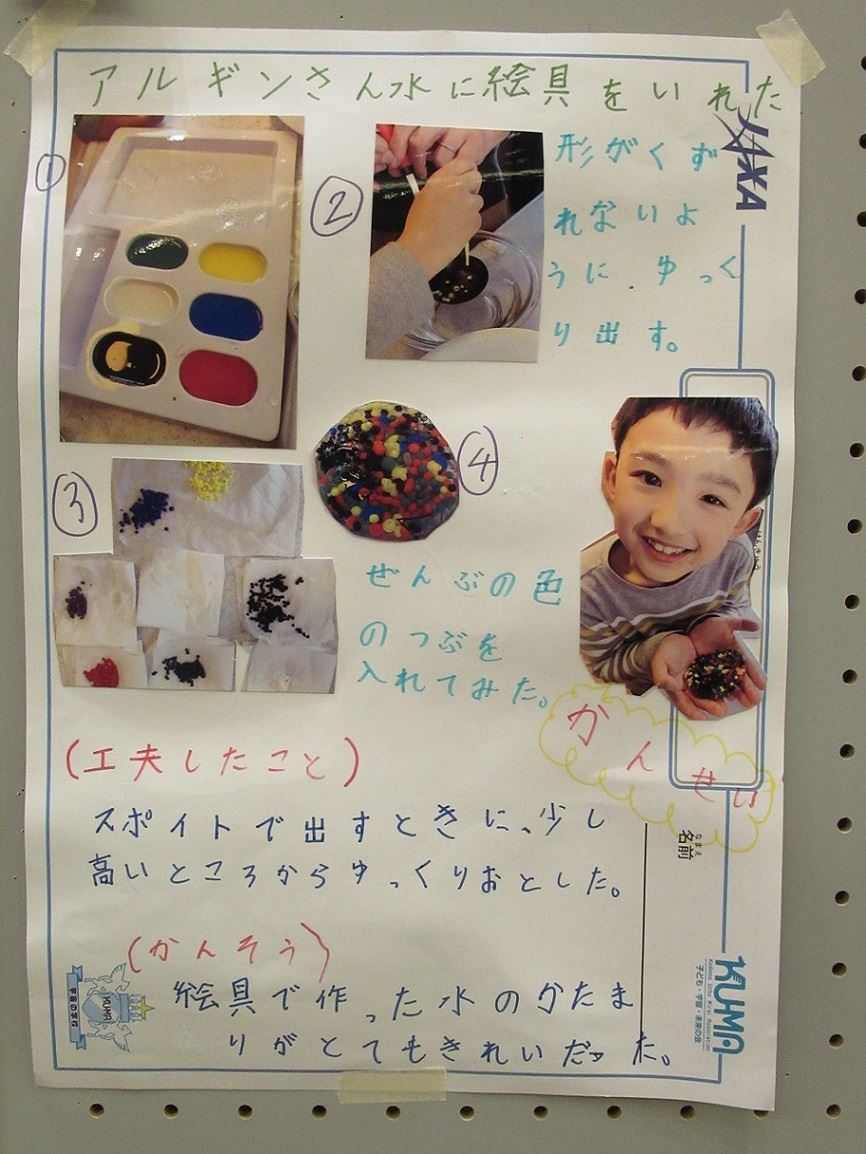 アルギンさん水に絵具をいれた
JAXA
①
②
形がくず
れないよ
うに、ゆっく
り出す。
③
④
ぜんぶの色
のつぶを
入れてみた。
かんせい
(工夫したこと)
スポイトで出すときに、少し
高いところからゆっくりおとした。
なまえ
名前
(かんそう)
絵具で作った水のかたま
りがとてもきれいだった。
KUMA
Kodomo Uchu Mirai Association
子ども・宇宙・未来の会
KUMA
宇宙の学校